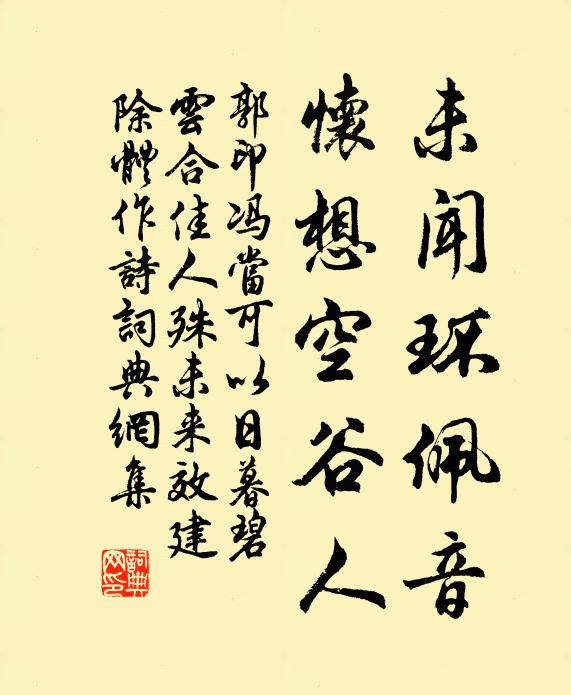 未闻环佩音
懷想空谷人
郭印冯當可以日暮碧
雲合佳人殊未来效建
除體作詩詞典網集
詞典
网印